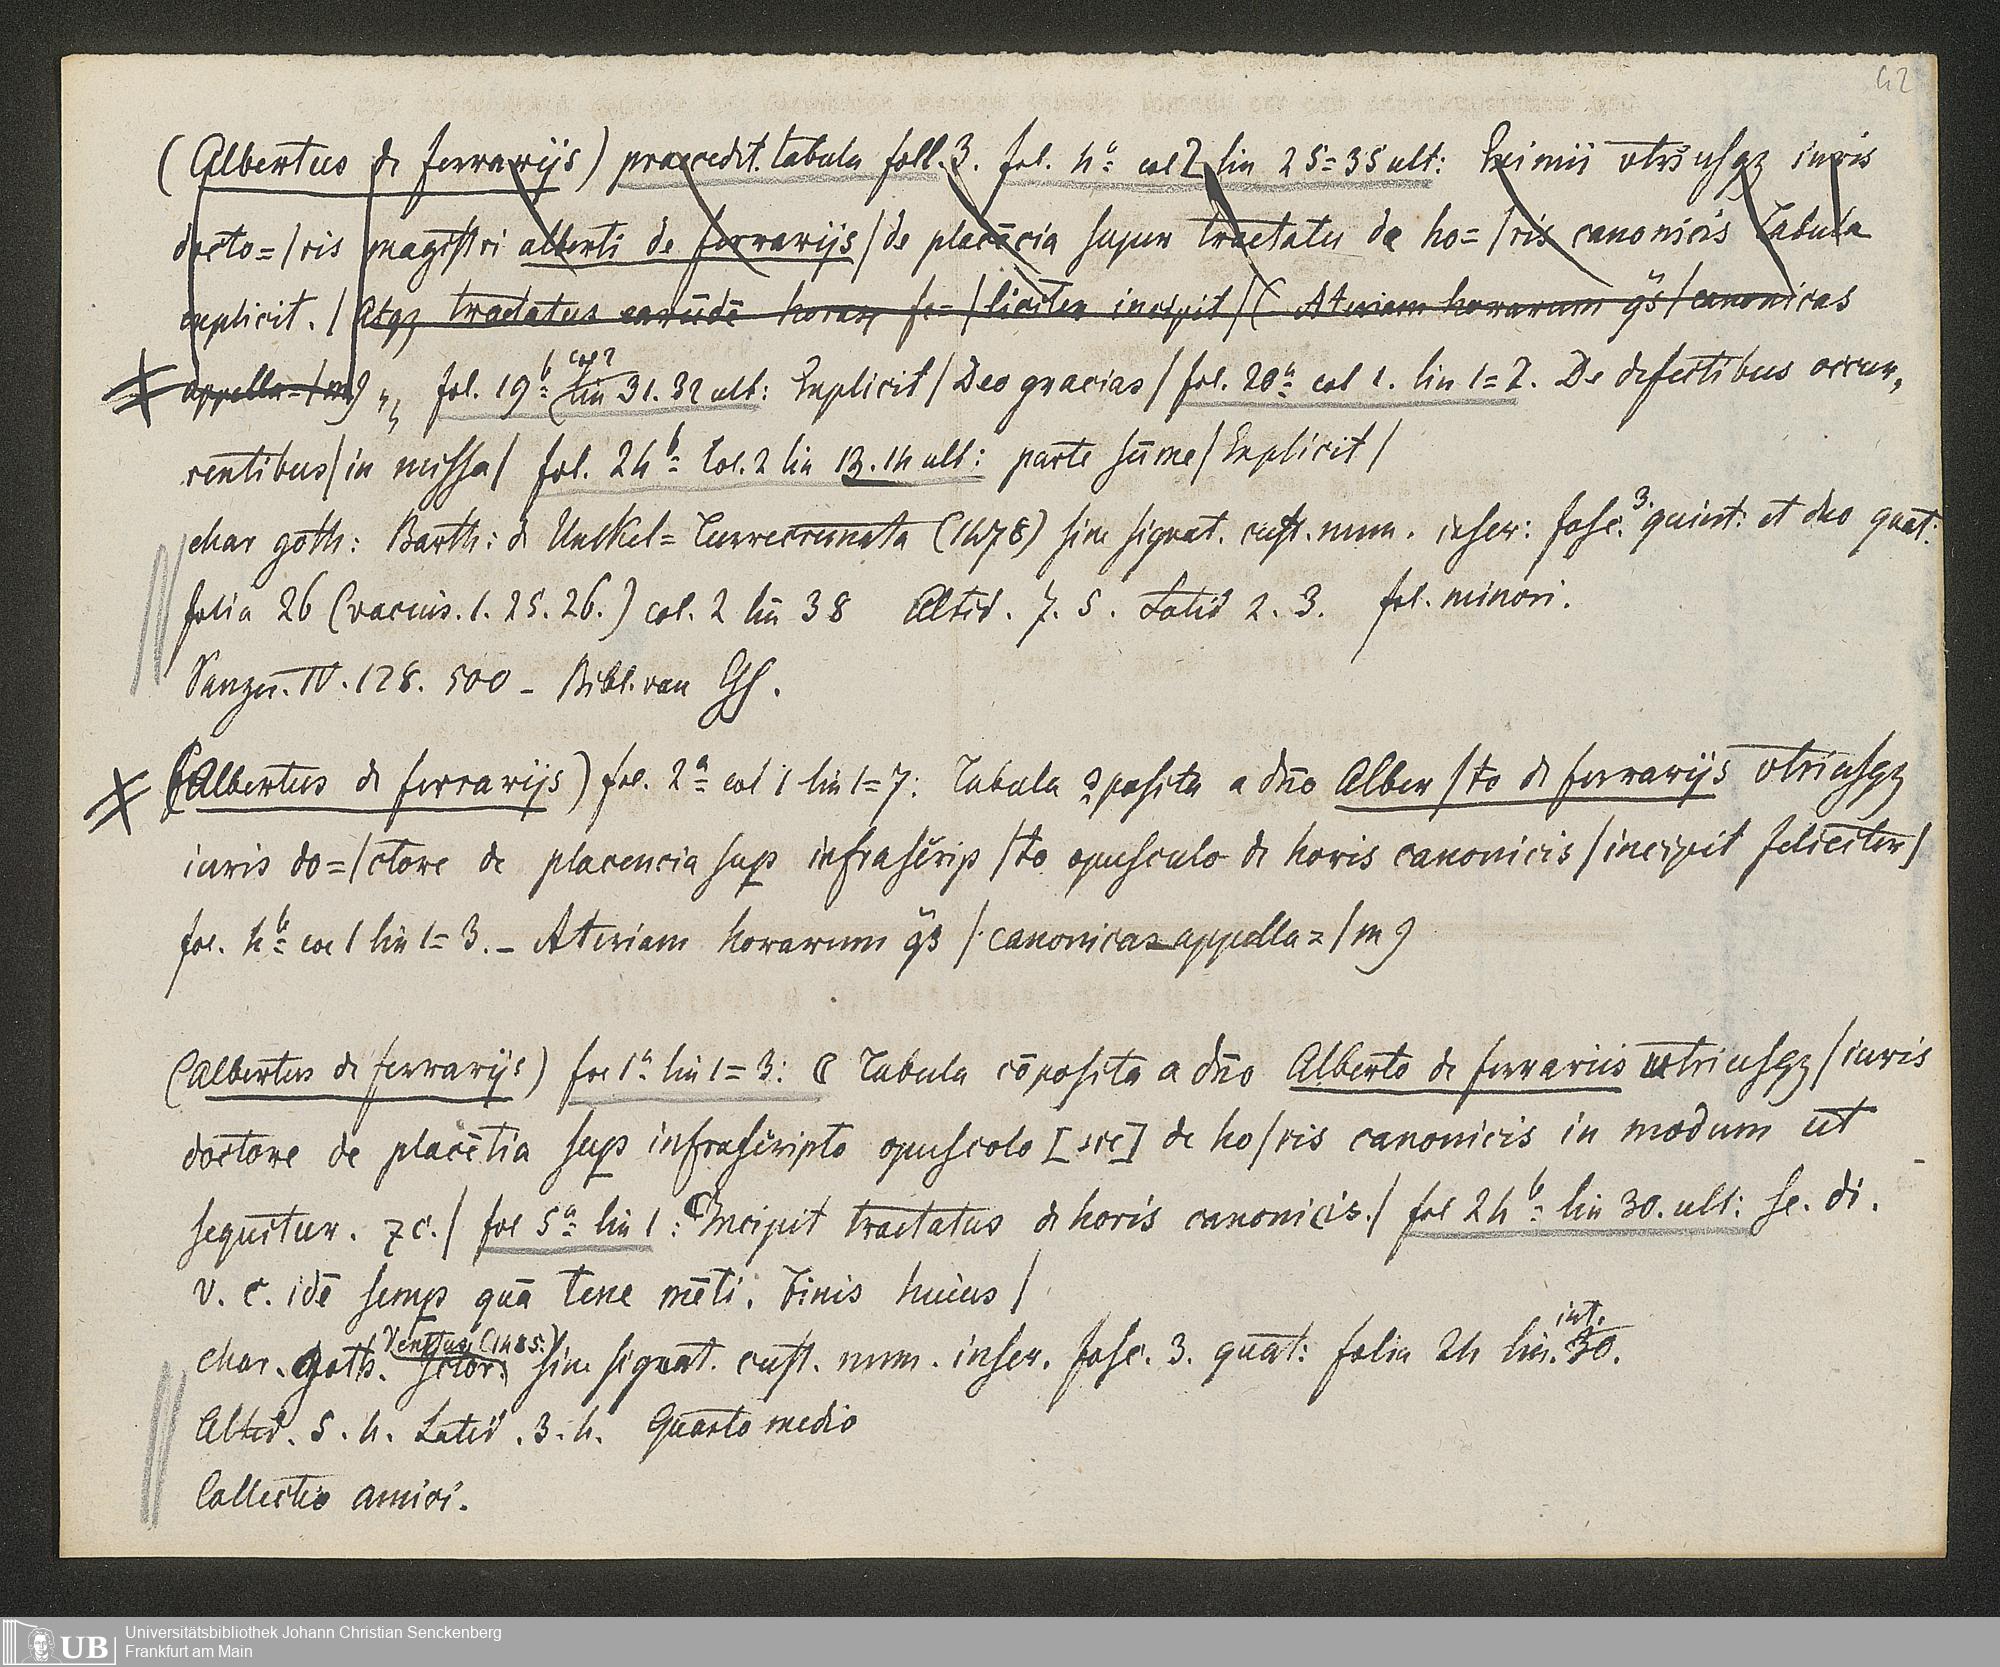 42
(Albertus de ferrarijs) praecedit. tabula foll. 3. fol. 4a col 2 lin 25=35 ult: Eximii vtriusqz iuris
docto=/ris magistri alberti de ferrarijs/de placēcia super tractatu de ho=/ris canonicis Tabula
explicit. / Atqz tractatus earūdē horarum fe=/liciter incipit/( Ateriam horarum q̄s/canonicas
appella=/m9 „ fol. 19b (col 2 lin 31. 32 ult: Explicit/Deo gracias/fol. 20a col 1. lin 1=2. De defectibus occur„
rentibus/in missa/ fol. 24b Col. 2 lin 13. 14 ult: parte sūme/Explicit/
char goth: Barth: de Unkel= Turrecremata (1478) sine signat. cust. num. inser: fasc. 3. quint: et duo quat:
folia 26 (vacuis. 1. 25. 26.) col. 2 lin 38 Altid. 7. 5. Latid 2. 3. fol. minori.
Panzer. IV. 128. 500 - Bibl. van
(Albertus de ferrarijs) fol. 2a col 1 lin 1=7: Tabula ꝯposita a dn̄o Alber/to de ferrarijs vtriusqz
iuris do=/ctore de placencia sup infrascrip/to opusculo de horis canonicis/incipit feliciter/
fol. 4b col 1 lin 1=3. - Ateriam horarum q̄s/canonicas appella=/m9
(Albertus de ferrarijs) fol 1a lin 1=3: C Tabula cōposita a dn̄o Alberto de ferrariis utriusqz/iuris
doctore de placētia sup infrascripto opuscolo [sic] de ho/ris canonicis in modum ut
sequitur. zc./ fol 5a lin 1: CIncipit tractatus de horis canonicis./ fol 24b lin 30. ult: se. di.
v. c. idē semp quā tene mēti. Finis huius/
char. goth. Venetiae (1485.) sine signat. cust. num. inser. fasc. 3. quat: folia 24 lin. int. 30.
Altid. 5. 4. Latid. 3. 4. Quarto medio
Collectio amici.
UB Universitätsbibliothek Johann Christian Senckenberg
Frankfurt am Main